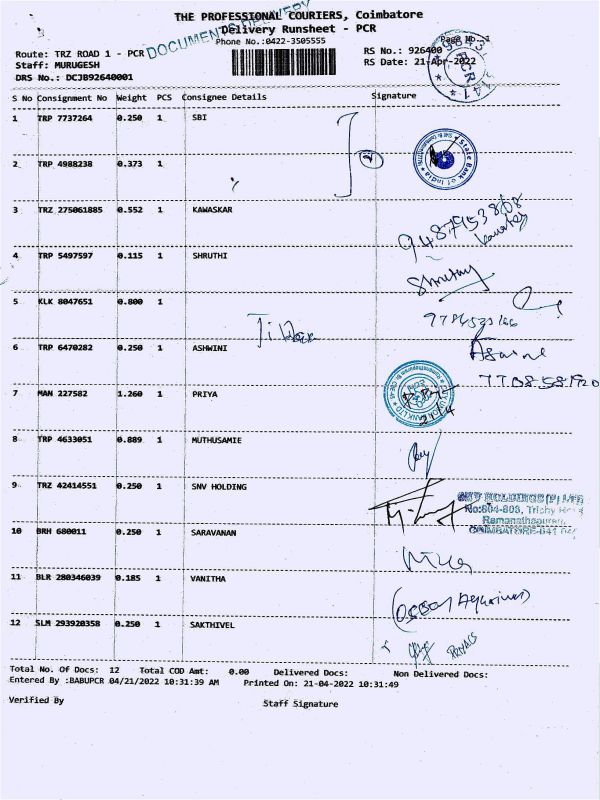 THE PROFESSIONAL COURIERS, Coimbatore
Delivery Runsheet - PCR
DOCUMENTS DELIVERY
Phone No.:0422-3505555
Page No. 1
Route: TRZ ROAD 1 - PCR
RS No.: 926400
Staff: MURUGESH
RS Date: 21-Apr-2022
DRS No.: DCJB92640001
S No Consignment No Weight PCS Consignee Details Signature
1 TRP 7737264 0.250 1 SBI
State Bank of India
2 TRP 4988238 0.373 1
3 TRZ 275061885 0.552 1 KAWASKAR
4 TRP 5497597 0.115 1 SHRUTHI
5 KLK 8047651 0.800 1
6 TRP 6470282 0.250 1 ASHWINI
7 MAN 227582 1.260 1 PRIYA
8 TRP 4633051 0.889 1 MUTHUSAMIE
9 TRZ 42414551 0.250 1 SNV HOLDING
SNV HOLDINGS (P) LTD
No:804-803, Trichy Road
Ramanathapuram,
COIMBATORE-641 045
10 BRH 680011 0.250 1 SARAVANAN
11 BLR 280346039 0.185 1 VANITHA
12 SLM 293920358 0.250 1 SAKTHIVEL
Total No. Of Docs: 12 Total COD Amt: 0.00 Delivered Docs: Non Delivered Docs:
Entered By :BABUPCR 04/21/2022 10:31:39 AM Printed On: 21-04-2022 10:31:49
Verified By
Staff Signature